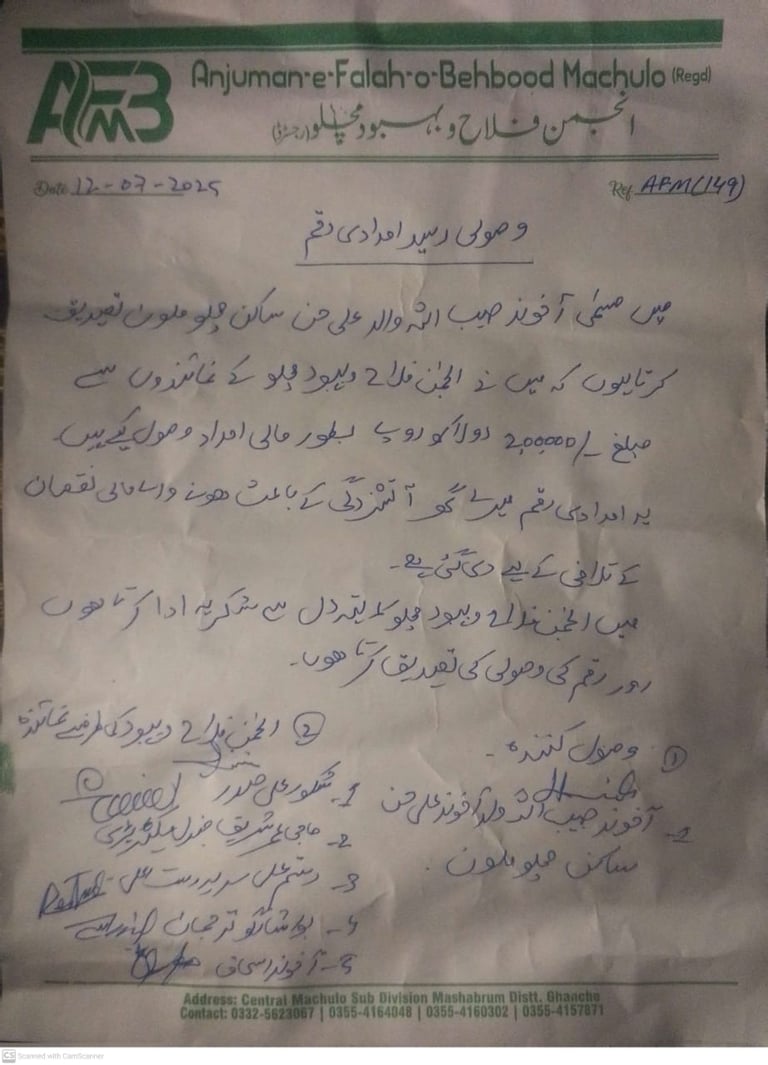 AFMB
Anjuman-e-Falah-o-Behbood Machulo (Regd)
انجمن فلاح و بہبود مچلو (رجسٹرڈ)
Date 12-07-2025
Ref AFM(149)
وصولی رسید امدادی رقم
میں مسمٰی آخوند حبیب اللہ والد علی حسن ساکن مچلو ملون تصدیق
کرتا ہوں کہ میں نے انجمن فلاح و بہبود مچلو کے نمائندوں سے
مبلغ /- 2,00,000 دو لاکھ روپے بطور مالی امداد وصول کیے ہیں۔
یہ امدادی رقم میرے گھر آتشزدگی کے باعث ہونے والے مالی نقصان
کے تلافی کے لیے دی گئی ہے۔
میں انجمن فلاح و بہبود مچلو کا تہہ دل سے شکریہ ادا کرتا ہوں
اور رقم کی وصولی کی تصدیق کرتا ہوں۔
① وصول کنندہ۔
آخوند حبیب اللہ ولد آخوند علی حسن
ساکن مچلو ملون۔
② انجمن فلاح و بہبود کی طرف سے نمائندہ
1۔ شکور علی صدر
2۔ حاجی محمد شریف جنرل سیکٹریٹری
3۔ رستم علی سرپرست علی
4۔ ترجمان
5۔ آخوند اسحاق
Address: Central Machulo Sub Division Mashabrum Distt. Ghanche
Contact: 0332-5623067 | 0355-4164048 | 0355-4160302 | 0355-4157871
CS Scanned with CamScanner